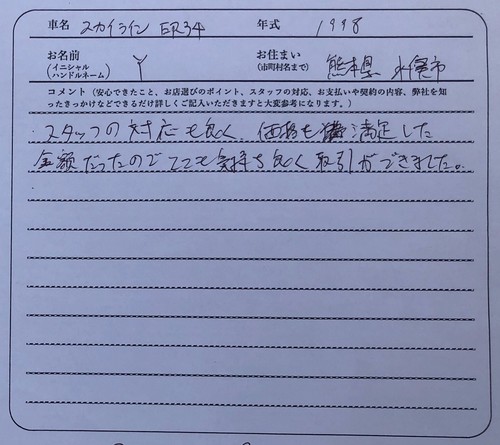 車名 スカイライン ER34 年式 1998
お名前 (イニシャル ハンドルネーム) Y お住まい (市町村名まで) 熊本県 水俣市
コメント（安心できたこと、お店選びのポイント、スタッフの対応、お支払いや契約の内容、弊社を知
ったきっかけなどできるだけ詳しくご記入いただきますと大変参考になります。）
スタッフの対応も良く、価格も満足した
金額だったのでとても気持ち良く取引ができました。